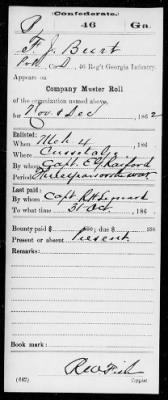 Confederate.
B 46 Ga.
F. J. Burt
Pvt Co. D, 46 Reg't Georgia Infantry.
Appears on
Company Muster Roll
of the organization named above,
for Nov & Dec, 1862
Enlisted:
When Mch 4, 186
Where Cusseta, Ga
By whom Capt. E G Raiford
Period three years or the war
Last paid:
By whom Capt R H
To what time 31 Oct, 186
Bounty paid $ 100; due $ 100
Present or absent Present
Remarks:
Book mark:
(642) Copyist.